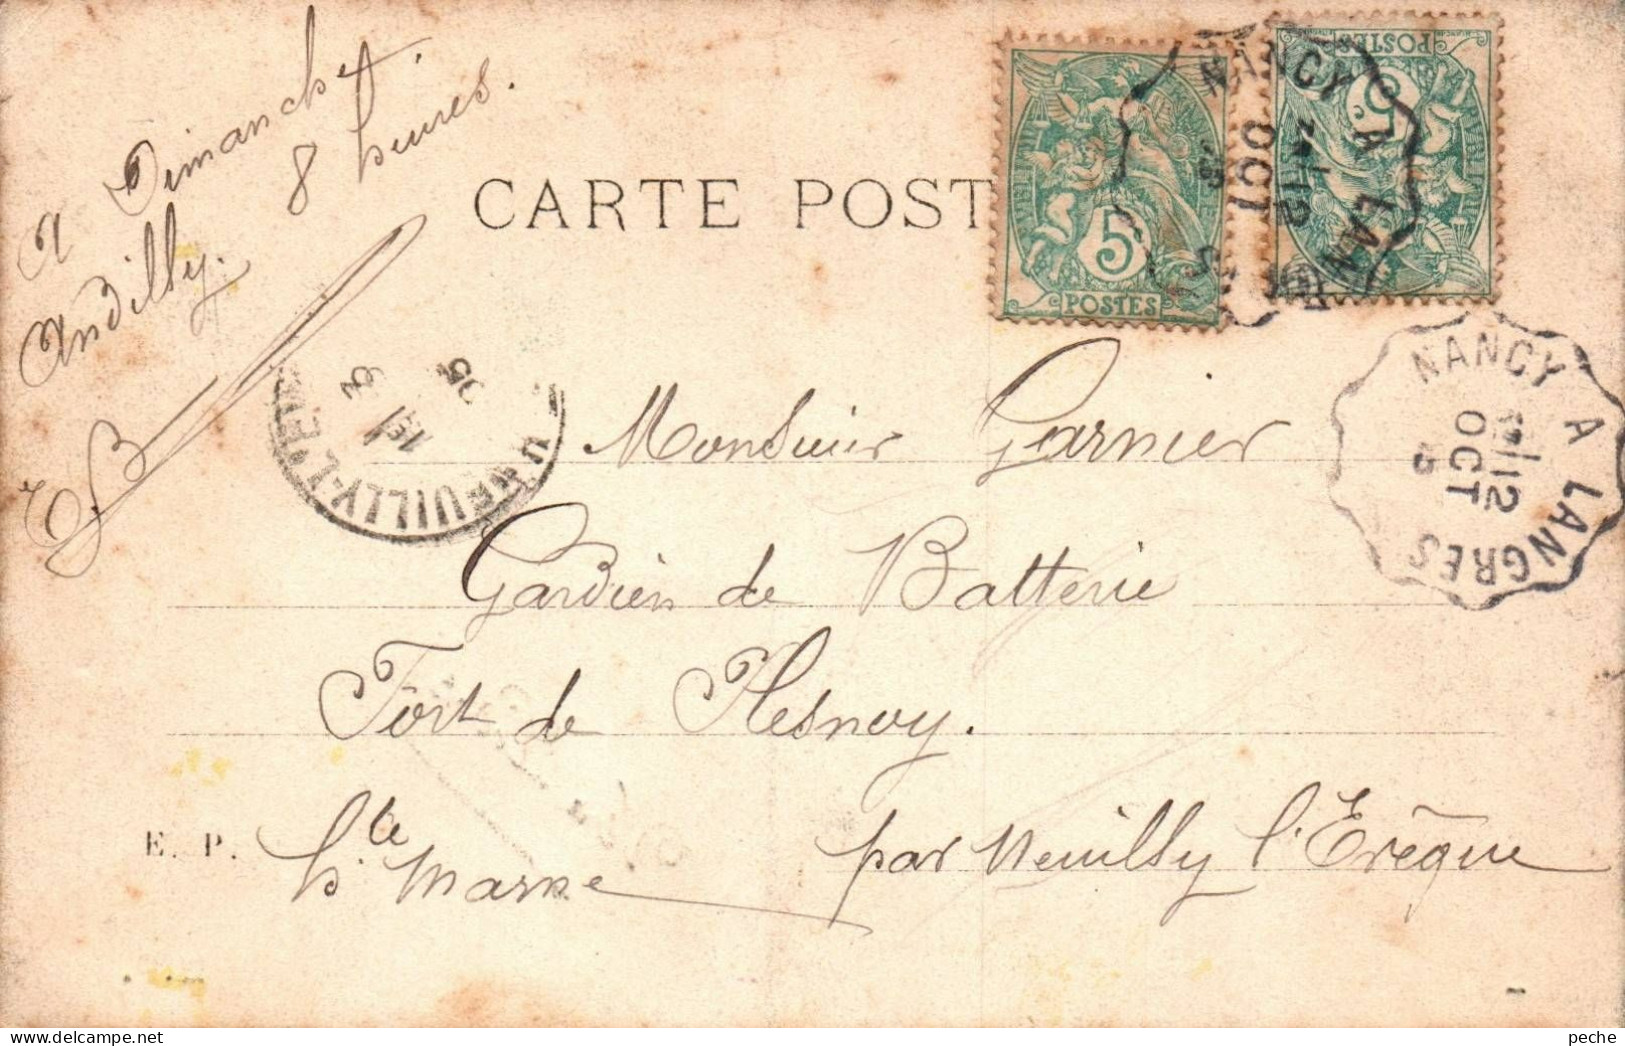 A Dimanche
Andilly. 8 heures.
CARTE POST
5
POSTES
POSTES
5
NANCY A LANGRES
12
OCT
5
NANCY A LANGRES
12
OCT
5
Monsieur Garnier
Gardien de Batterie
Fort de Plesnoy.
Hte Marne par Neuilly l'Evêque
E. P.
peche